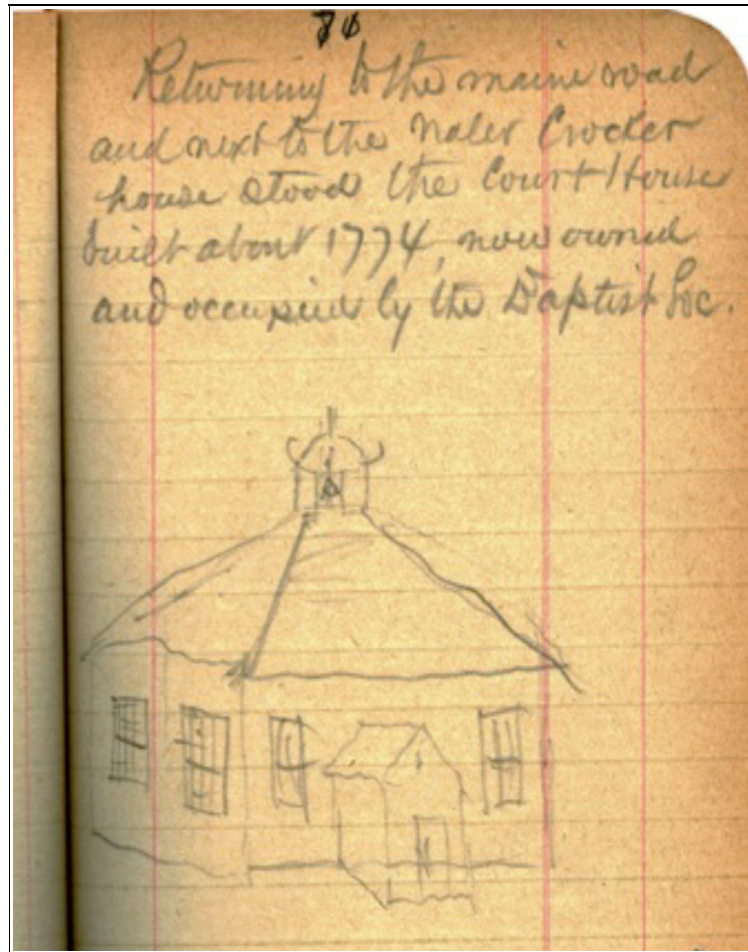 80
Returning to the maine road
and next to the Naler Crocker
house stood the Court House
built about 1774, now owned
and occupied by the Baptist Soc.